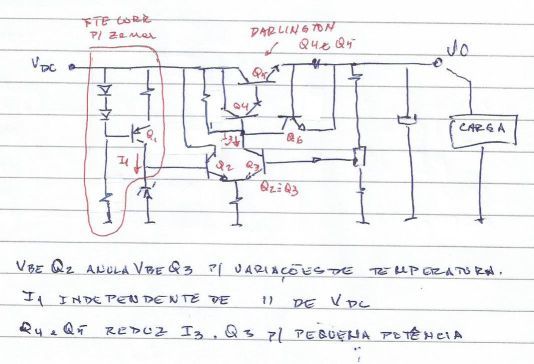 FTE CORR
P/ Zener
DARLINGTON
Q4 e Q5
VO
VDC
Q5
Q4
Q1
I3
Q6
CARGA
I1
Q2
Q3
Q2=Q3
VBE Q2 ANULA VBE Q3 P/ VARIAÇÕES DE TEMPERATURA.
I1 INDEPENDENTE DE " DE VDC
Q4 e Q5 REDUZ I3. Q3 P/ PEQUENA POTÊNCIA